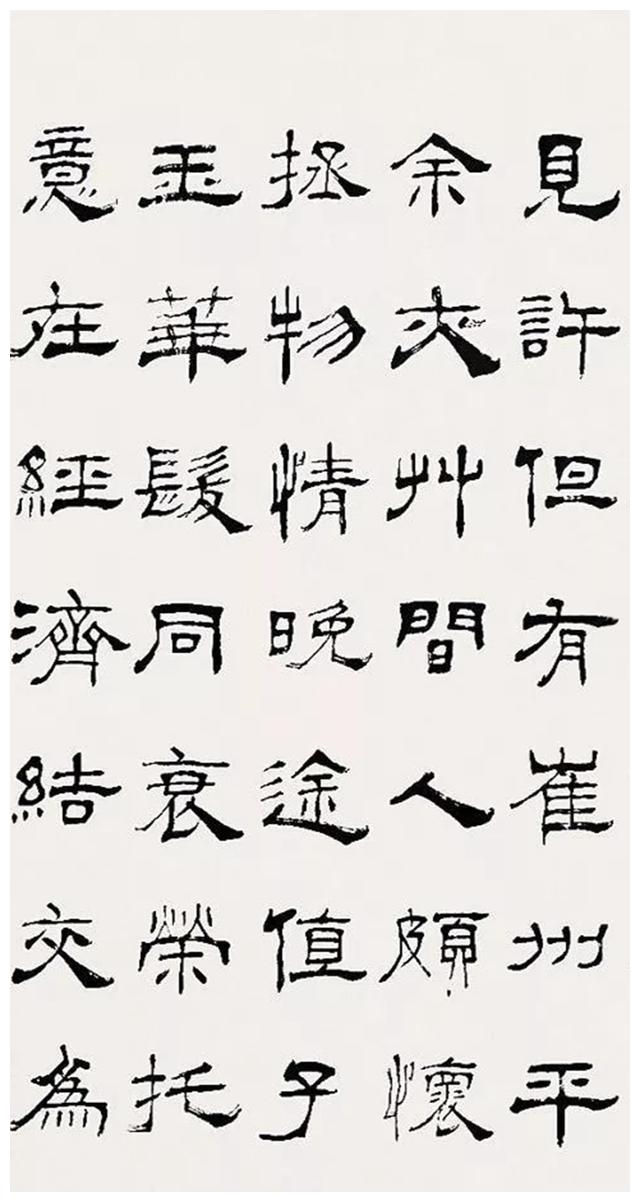 見許但有崔州平
余亦艸間人頗懷
拯物情晚途值子
玉華髮同衰榮托
意在經濟結交為